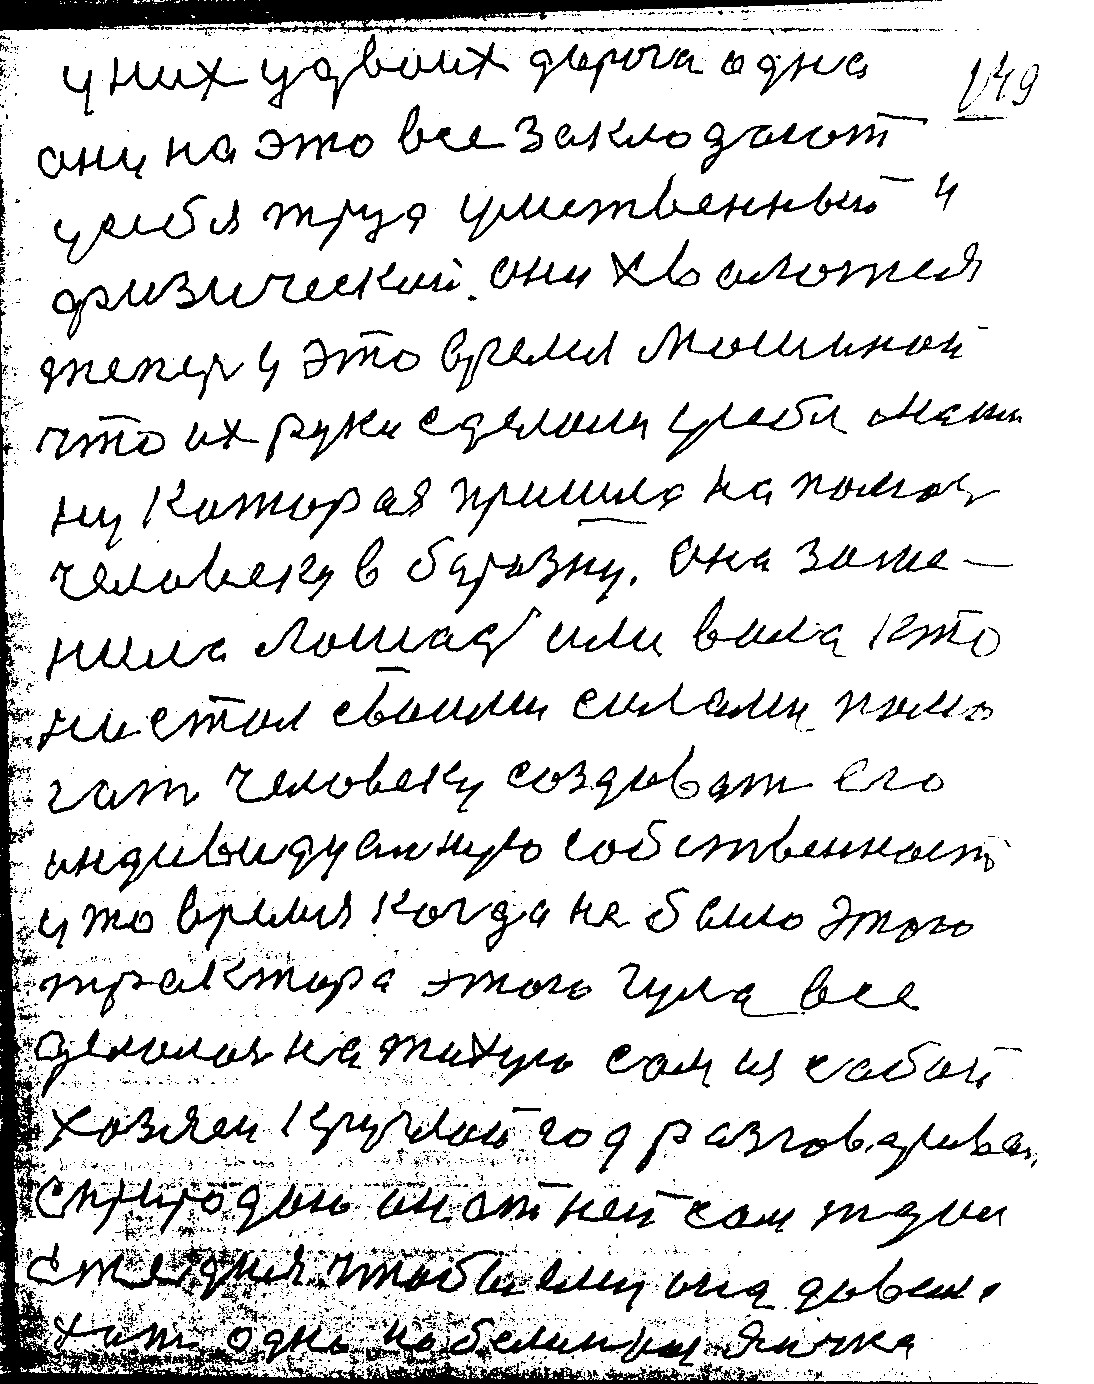 у них у двоих дорога одна
149
они на это все закладают
у себя труд умственный и
физический. они хволются
тепер у это время Машиной
что их руки сделали у себя маши
ну Которая пришла на помощ
человеку в борозну. Она заме-
нила Лошад или вола кто
ни стал своими силами помо
гат человеку создават его
индивидуалную собственност
у то время Когда не было этого
трактора этого гула все
делалоя на тихую сам из собой
хозяен Круглой год разговаривал
с природою он от ней сам ждал
с те дня чтобы ему она давала
хот одно
яичка